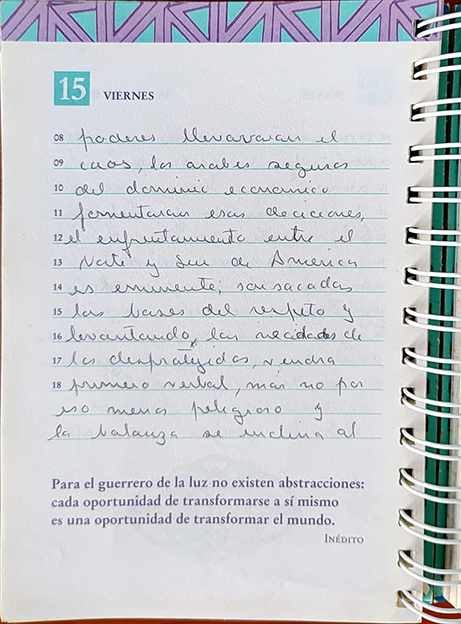 15 VIERNES
08 poderes llevavaran el
09 caos, los arabes seguros
10 del dominio economico
11 fomentaran esas deciciones,
12 el enfrentamiento entre el
13 Norte y Sur de America
14 es eminente; son sacadas
15 las bases del respeto y
16 levantando, las necidades de
17 los desprotejidos, vendra
18 primero verbal, mas no por
eso menos peligroso y
la balanza se inclina al
Para el guerrero de la luz no existen abstracciones:
cada oportunidad de transformarse a sí mismo
es una oportunidad de transformar el mundo.
INÉDITO